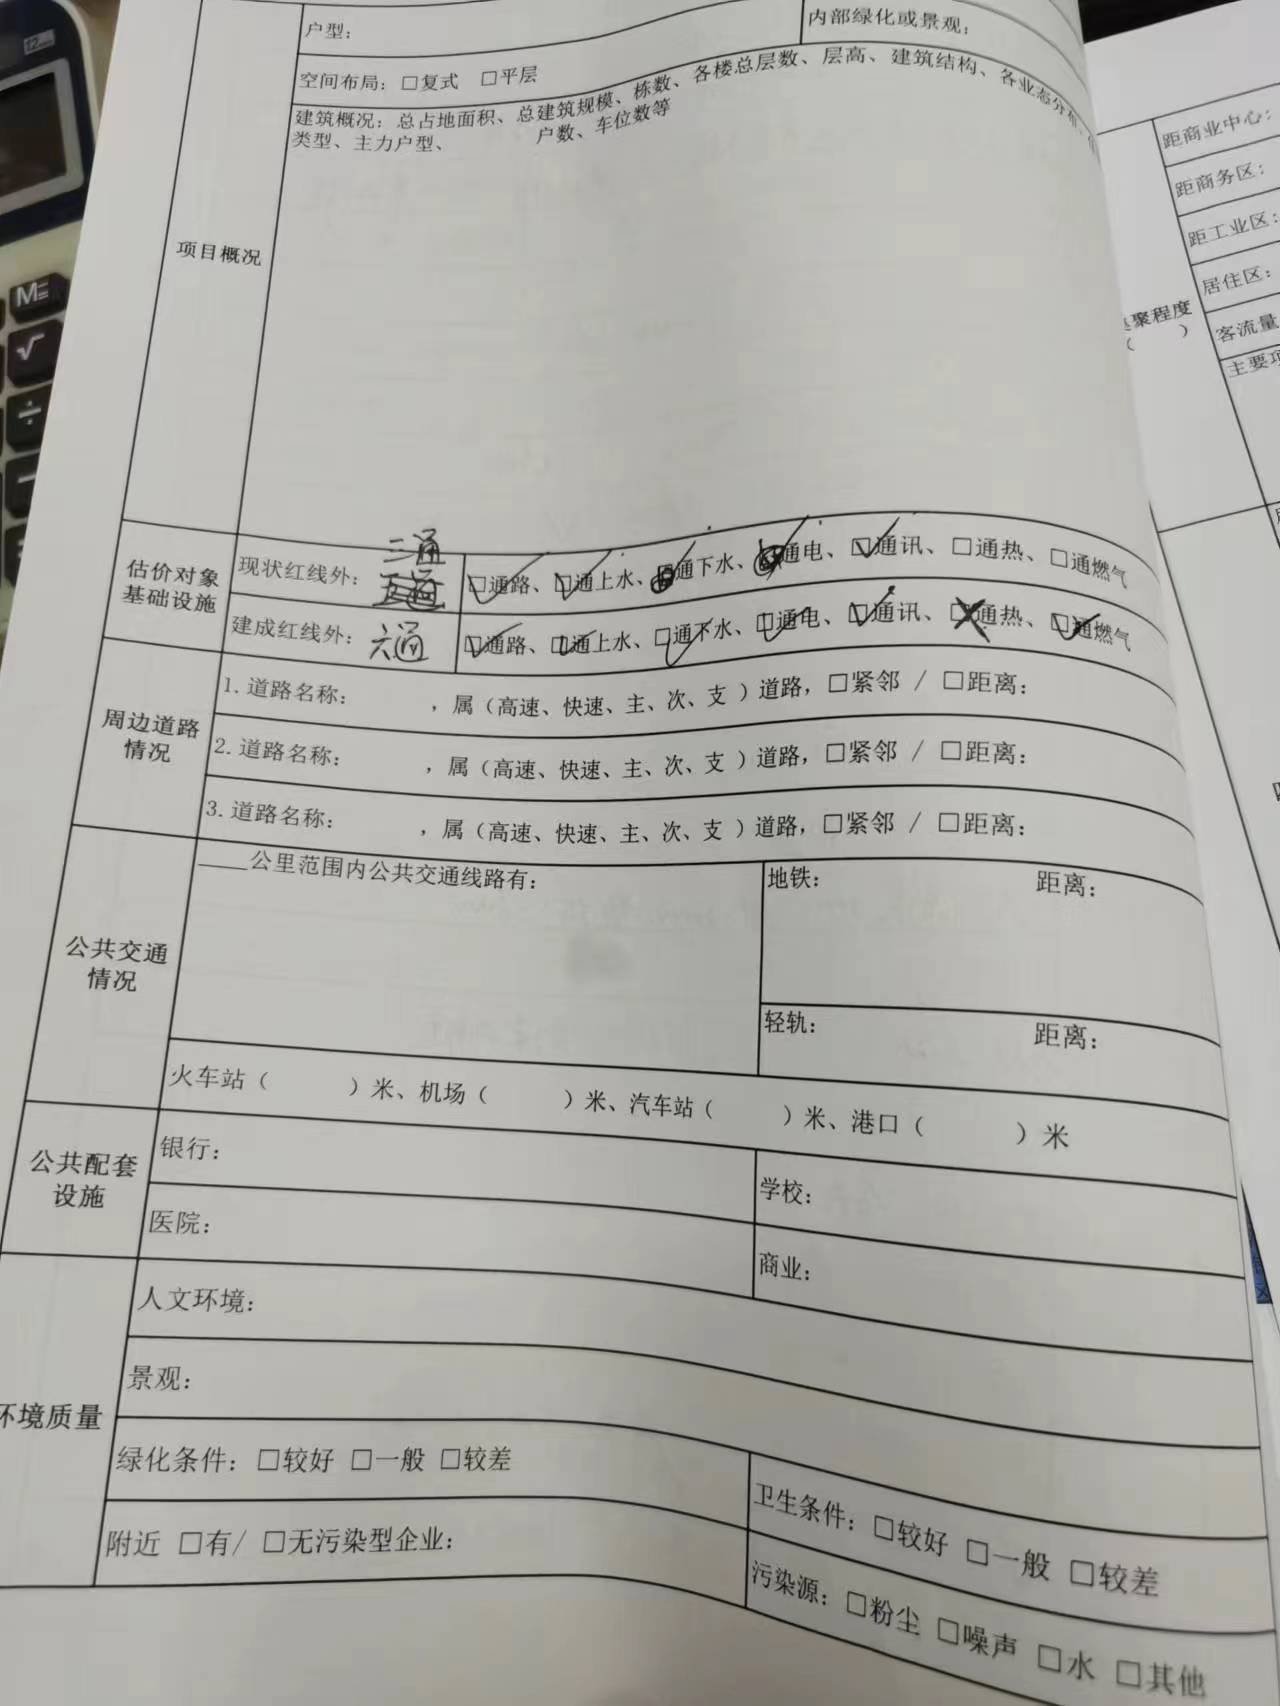 12
M=
√
÷
户型：
内部绿化或景观：
空间布局：□复式 □平层
建筑概况：总占地面积、总建筑规模、栋数、各楼总层数、层高、建筑结构、各业态分布、
类型、主力户型、 户数、车位数等
项目概况
估价对象
基础设施
现状红线外：
三通
五通
☑通路、☑通上水、□通下水、☑通电、☑通讯、□通热、□通燃气
建成红线外：六通
☑通路、☑通上水、☑通下水、☑通电、☑通讯、☒通热、☑通燃气
周边道路
情况
1. 道路名称： ，属（高速、快速、主、次、支 ）道路，□紧邻 / □距离：
2. 道路名称： ，属（高速、快速、主、次、支 ）道路，□紧邻 / □距离：
3. 道路名称： ，属（高速、快速、主、次、支 ）道路，□紧邻 / □距离：
公共交通
情况
____公里范围内公共交通线路有：
地铁： 距离：
轻轨： 距离：
火车站（ ）米、机场（ ）米、汽车站（ ）米、港口（ ）米
公共配套
设施
银行：
学校：
医院：
商业：
环境质量
人文环境：
景观：
绿化条件：□较好 □一般 □较差
卫生条件：□较好 □一般 □较差
附近 □有/ □无污染型企业：
污染源：□粉尘 □噪声 □水 □其他
距商业中心：
距商务区：
距工业区：
居住区：
客流量
主要项
聚程度
（ ）